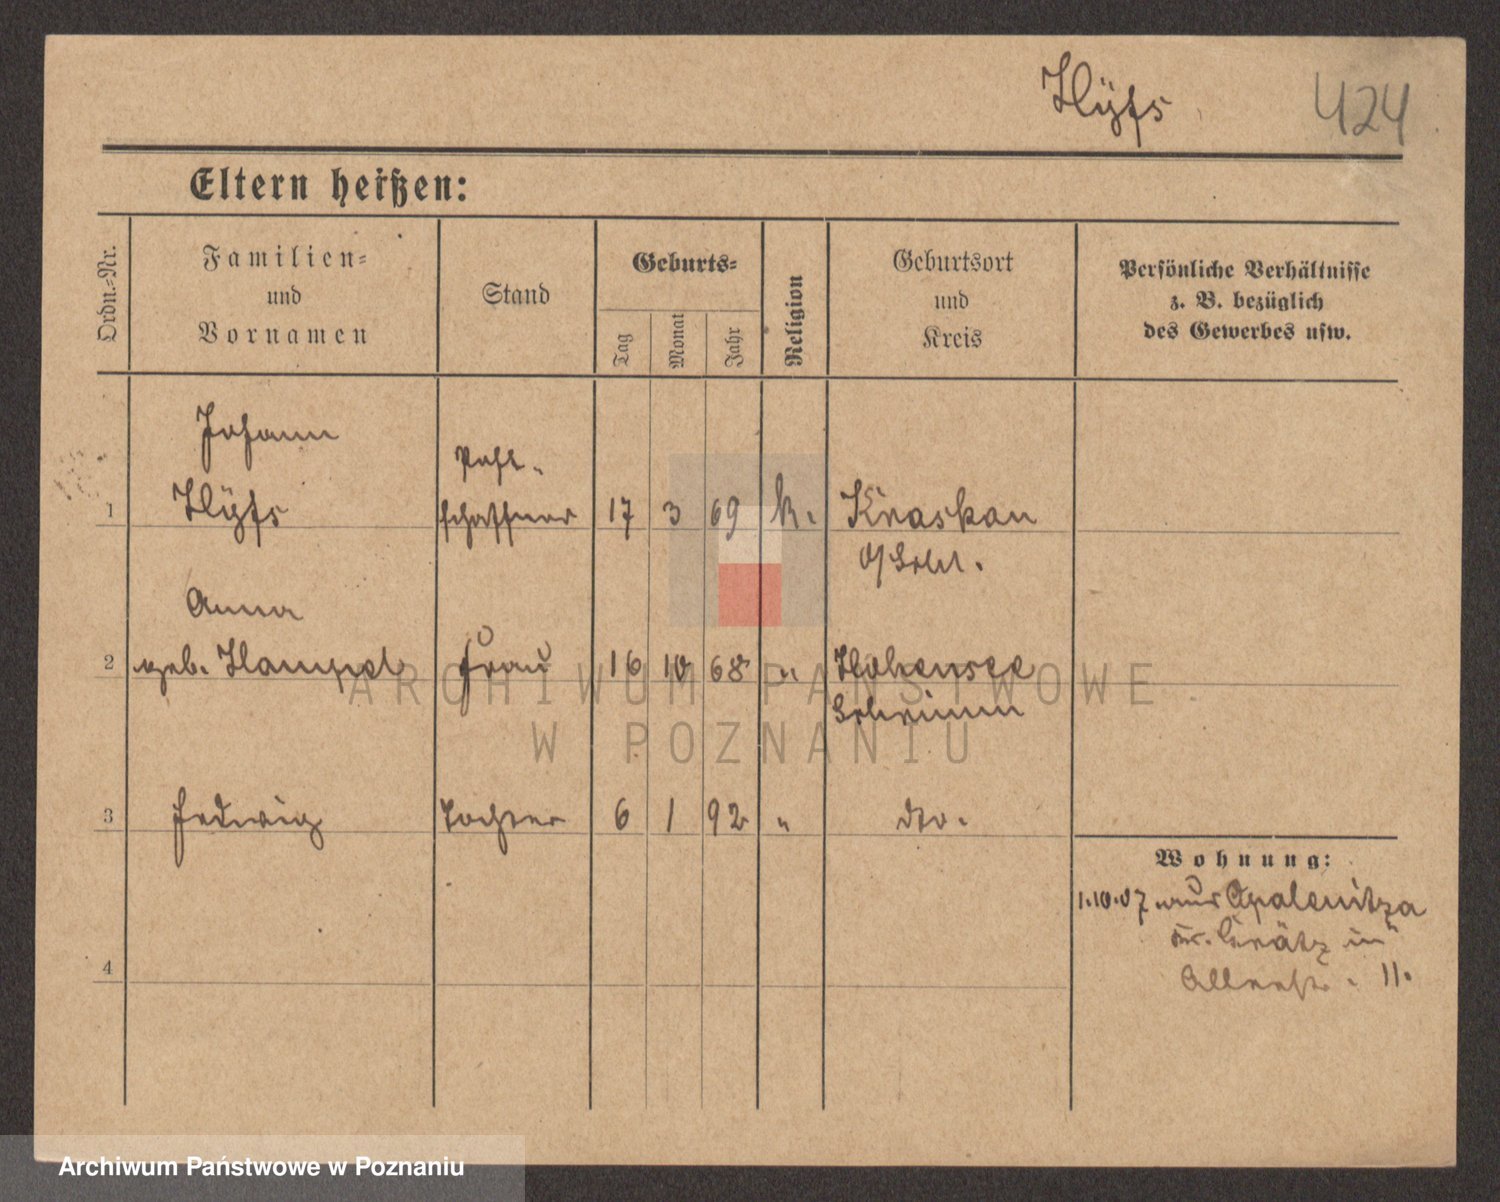 424
Eltern heißen:
Ordn.=Nr.
Familien=
und
Vornamen
Stand
Geburts=
Tag
Monat
Jahr
Religion
Geburtsort
und
Kreis
Persönliche Verhältnisse
z. B. bezüglich
des Gewerbes usw.
Johann
Post-
1 schaffner 17 3 69 k. Kraskau
O/Schl.
Anna
2 geb. Hampel Frau 16 10 68 " Hohensee
Schrimm
3 Hedwig Tochter 6 1 92 " dto.
Wohnung:
1.10.07 aus Opalenitza
Kr. Grätz in
4 11.
ARCHIWUM PAŃSTWOWE
W POZNANIU
Archiwum Państwowe w Poznaniu